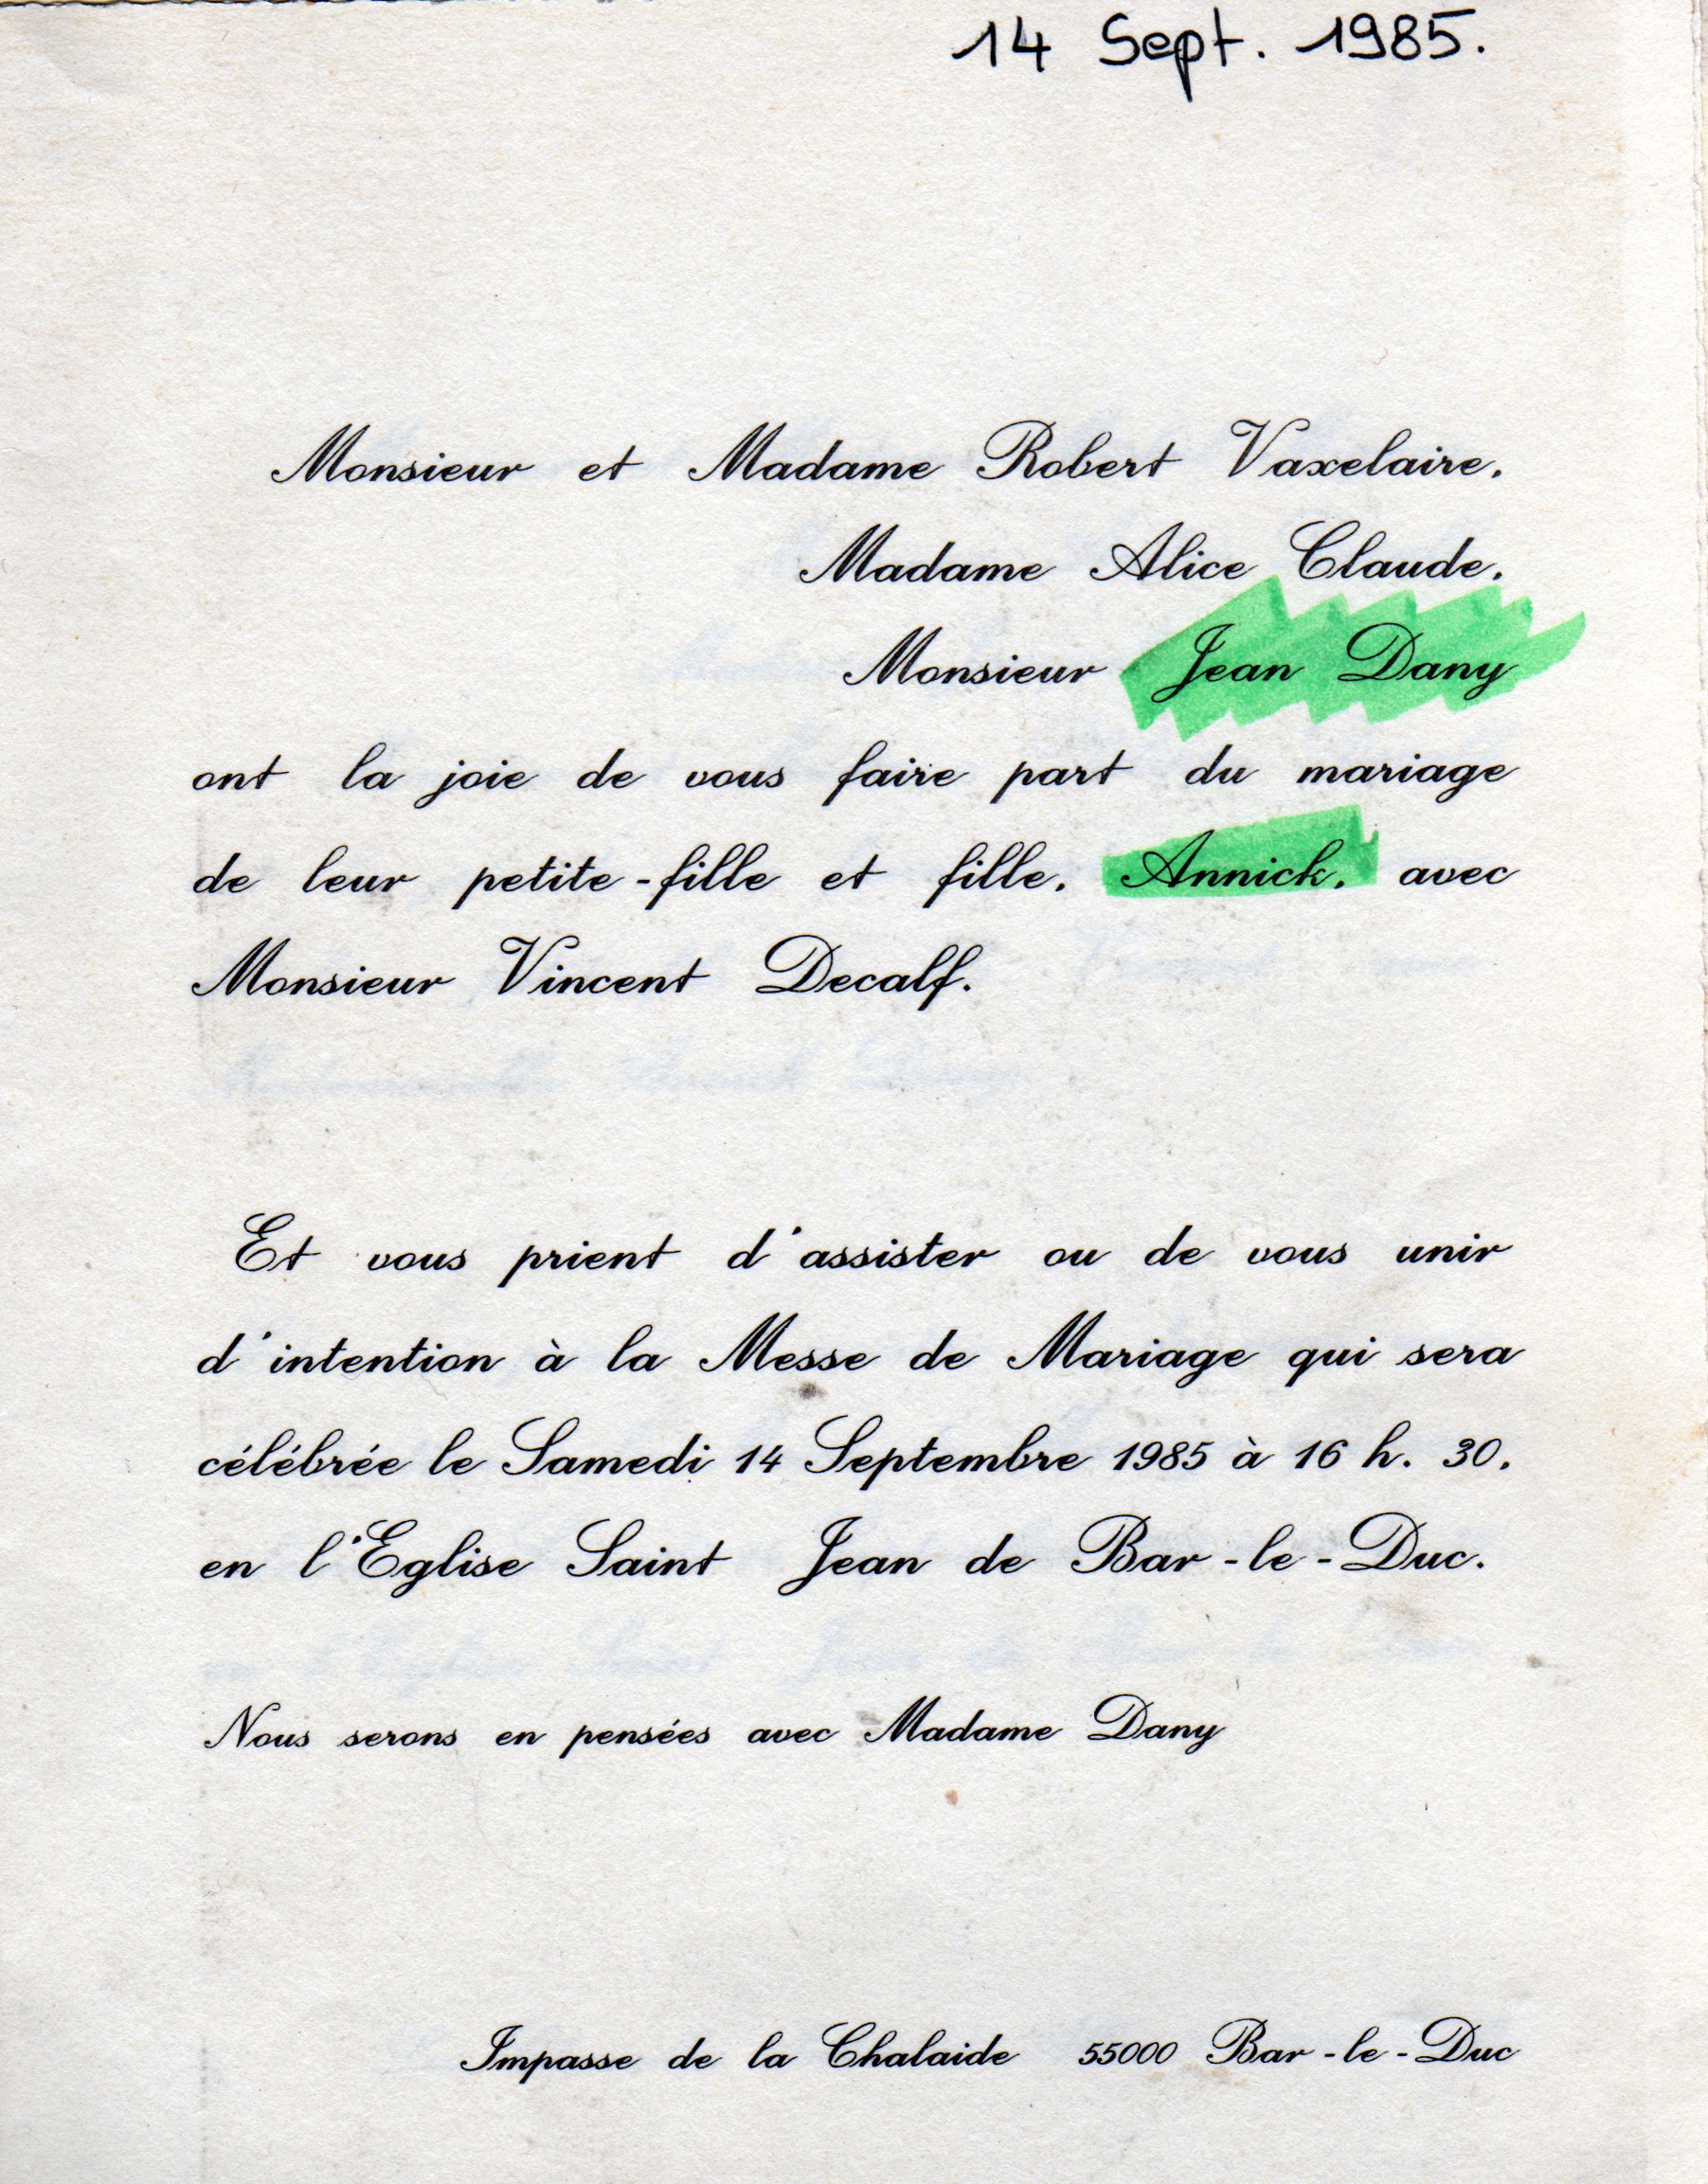 14 Sept. 1985.
Monsieur et Madame Robert Vaxelaire,
Madame Alice Claude,
Monsieur Jean Dany
ont la joie de vous faire part du mariage
de leur petite-fille et fille, Annick, avec
Monsieur Vincent Decalf.
Et vous prient d'assister ou de vous unir
d'intention à la Messe de Mariage qui sera
célébrée le Samedi 14 Septembre 1985 à 16 h. 30,
en l'Eglise Saint Jean de Bar-le-Duc.
Nous serons en pensées avec Madame Dany
Impasse de la Chalaide 55000 Bar-le-Duc